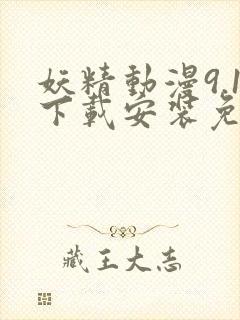 妖精動漫9.1
下載安装免
藏王大志